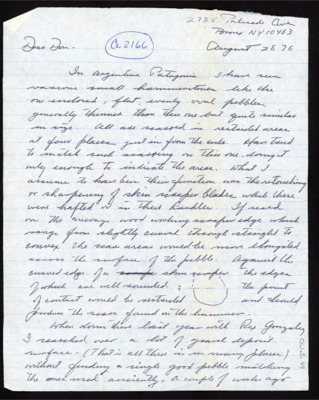 2755 Palisade Ave
Bronx NY 10463
August 28 76
Dear Don.
Ce2166
In Argentine Patagonia I have seen
various small hammerstones like the
one enclosed; flat, evenly oval pebbles
generally thinner than this one but quite similar
in size. All are scarred in restricted areas
at four places just in from the ends. Have tried
to match such scarring on this one, doing it
only enough to indicate the areas. What I
assume to have been their function was the retouching
or sharpening of skin scraper blades which there
were hafted in their handles. If used
on the average wood working scraper edge which
range from slightly curved through straight to
convex the scar areas would be more elongated
across the surface of the pebble. Against the
curved edge of a skin scraper the edges
of which are well rounded: the point
of contact would be restricted and should
produce the scars found on the hammer.
When down there last year with Rey Gonzalez
I searched over a lot of gravel deposit
surface. (That is all there is in many places)
without finding a single good pebble matching
the ones used anciently. A couple of weeks ago